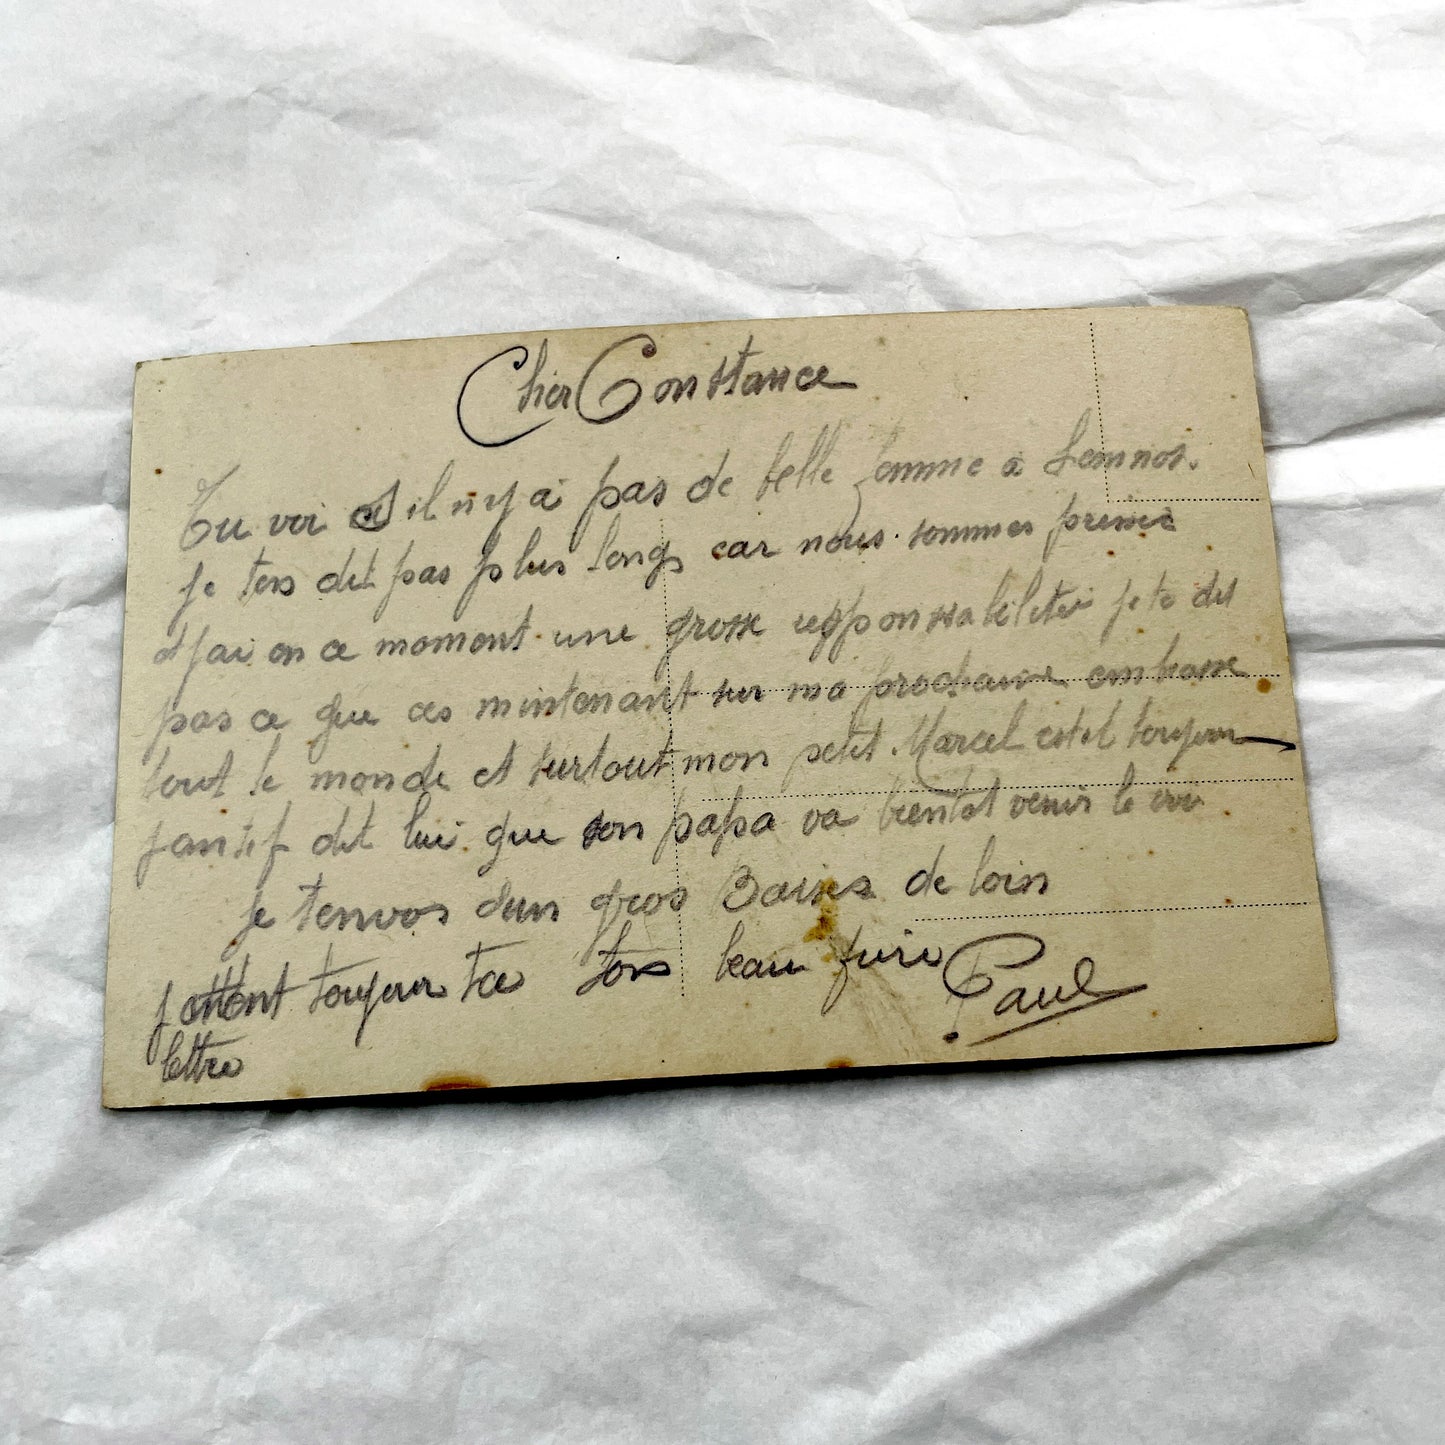 Cher Constance
Tu voi s'il n'y a pas de belle femme a Lemnos.
je ten dit pas plus long car nous sommes
et j'ai en ce moment une grosse je te dit
pas ce que ces mintenant sur ma prochaine embrasse
tout le monde et surtout mon petit Marcel est il toujour
dit lui que son papa va bientot venir le
je tenvoi gros Baises de loin
jattent toujour ta ton beau
lettre
Paul